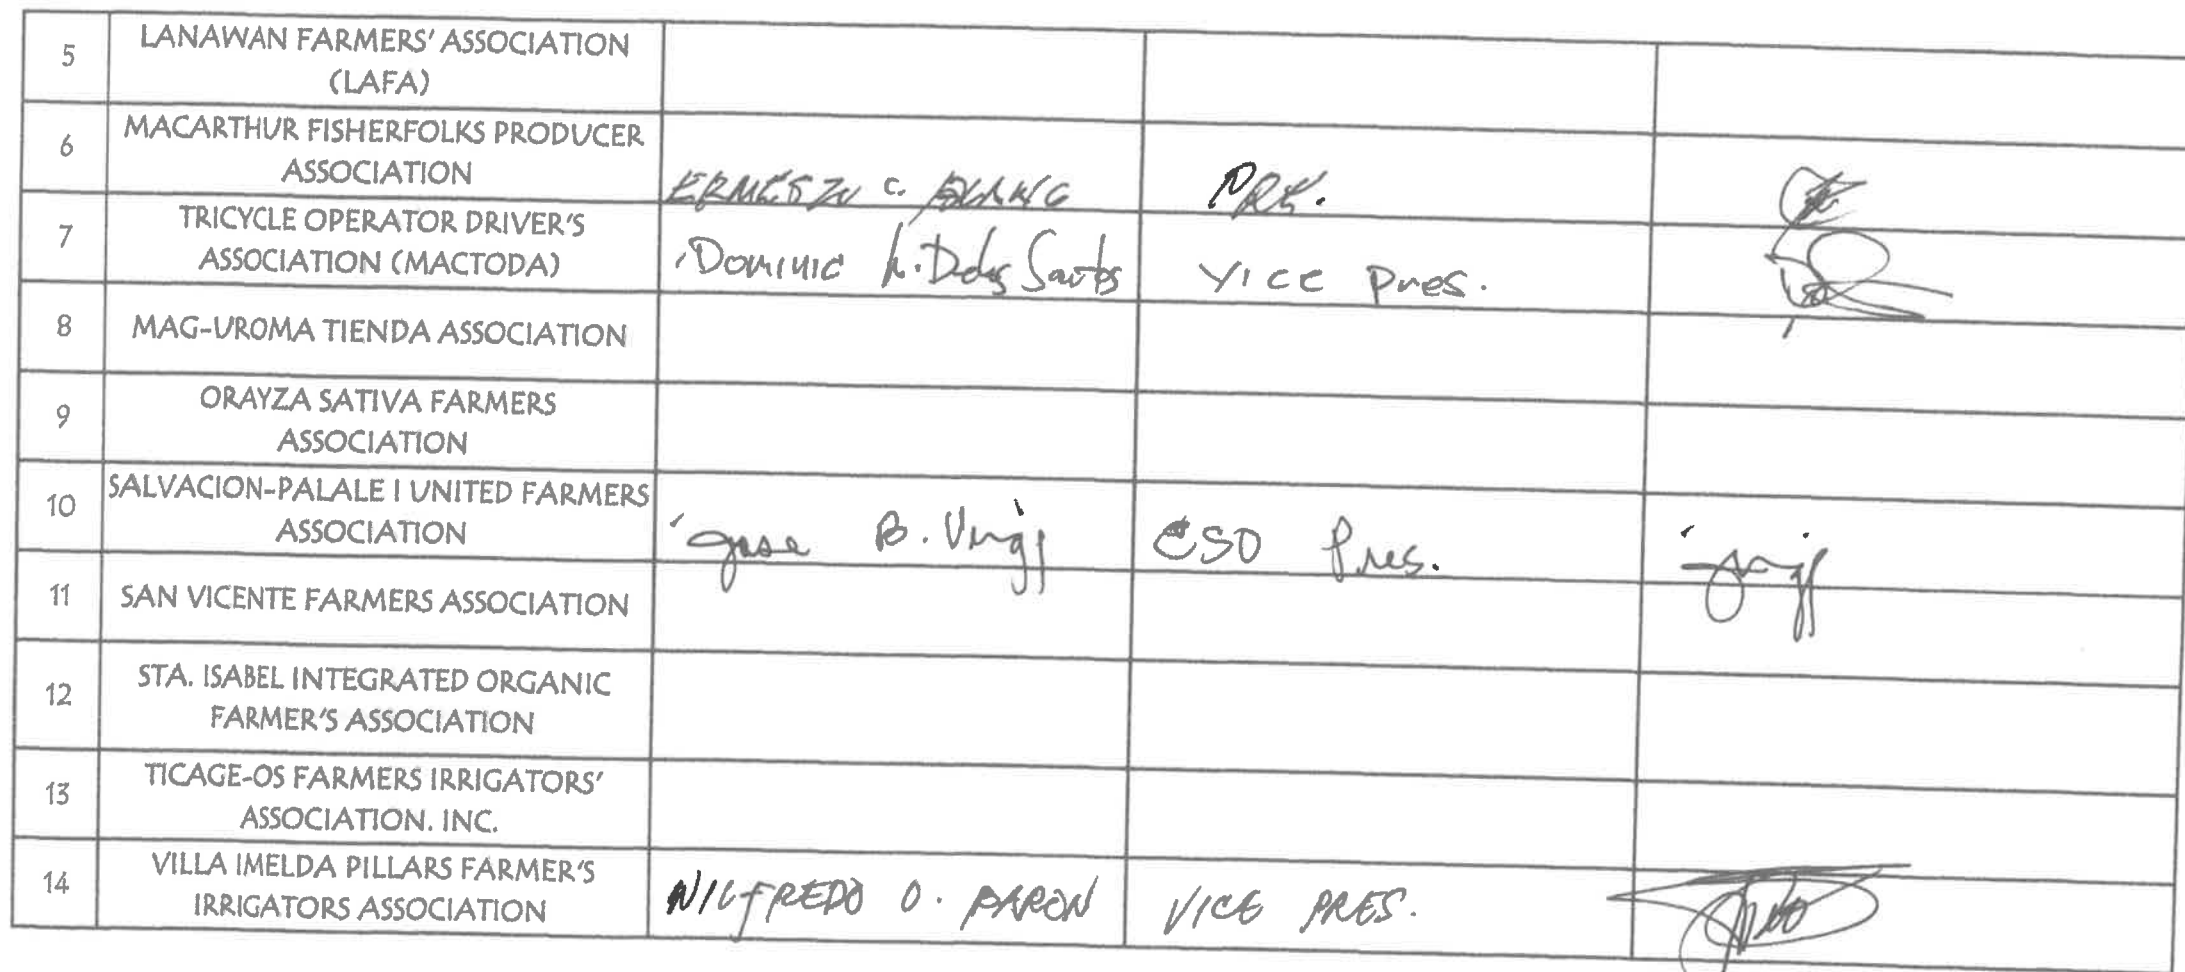 5 LANAWAN FARMERS' ASSOCIATION
(LAFA)
6 MACARTHUR FISHERFOLKS PRODUCER
ASSOCIATION
C. PRES.
7 TRICYCLE OPERATOR DRIVER'S
ASSOCIATION (MACTODA)
Dominic Delos Santos Vice Pres.
8 MAG-UROMA TIENDA ASSOCIATION
9 ORAYZA SATIVA FARMERS
ASSOCIATION
10 SALVACION-PALALE I UNITED FARMERS
ASSOCIATION
Jose B. CSO Pres.
11 SAN VICENTE FARMERS ASSOCIATION
12 STA. ISABEL INTEGRATED ORGANIC
FARMER'S ASSOCIATION
13 TICAGE-OS FARMERS IRRIGATORS'
ASSOCIATION. INC.
14 VILLA IMELDA PILLARS FARMER'S
IRRIGATORS ASSOCIATION
WILFREDO O. VICE PRES.